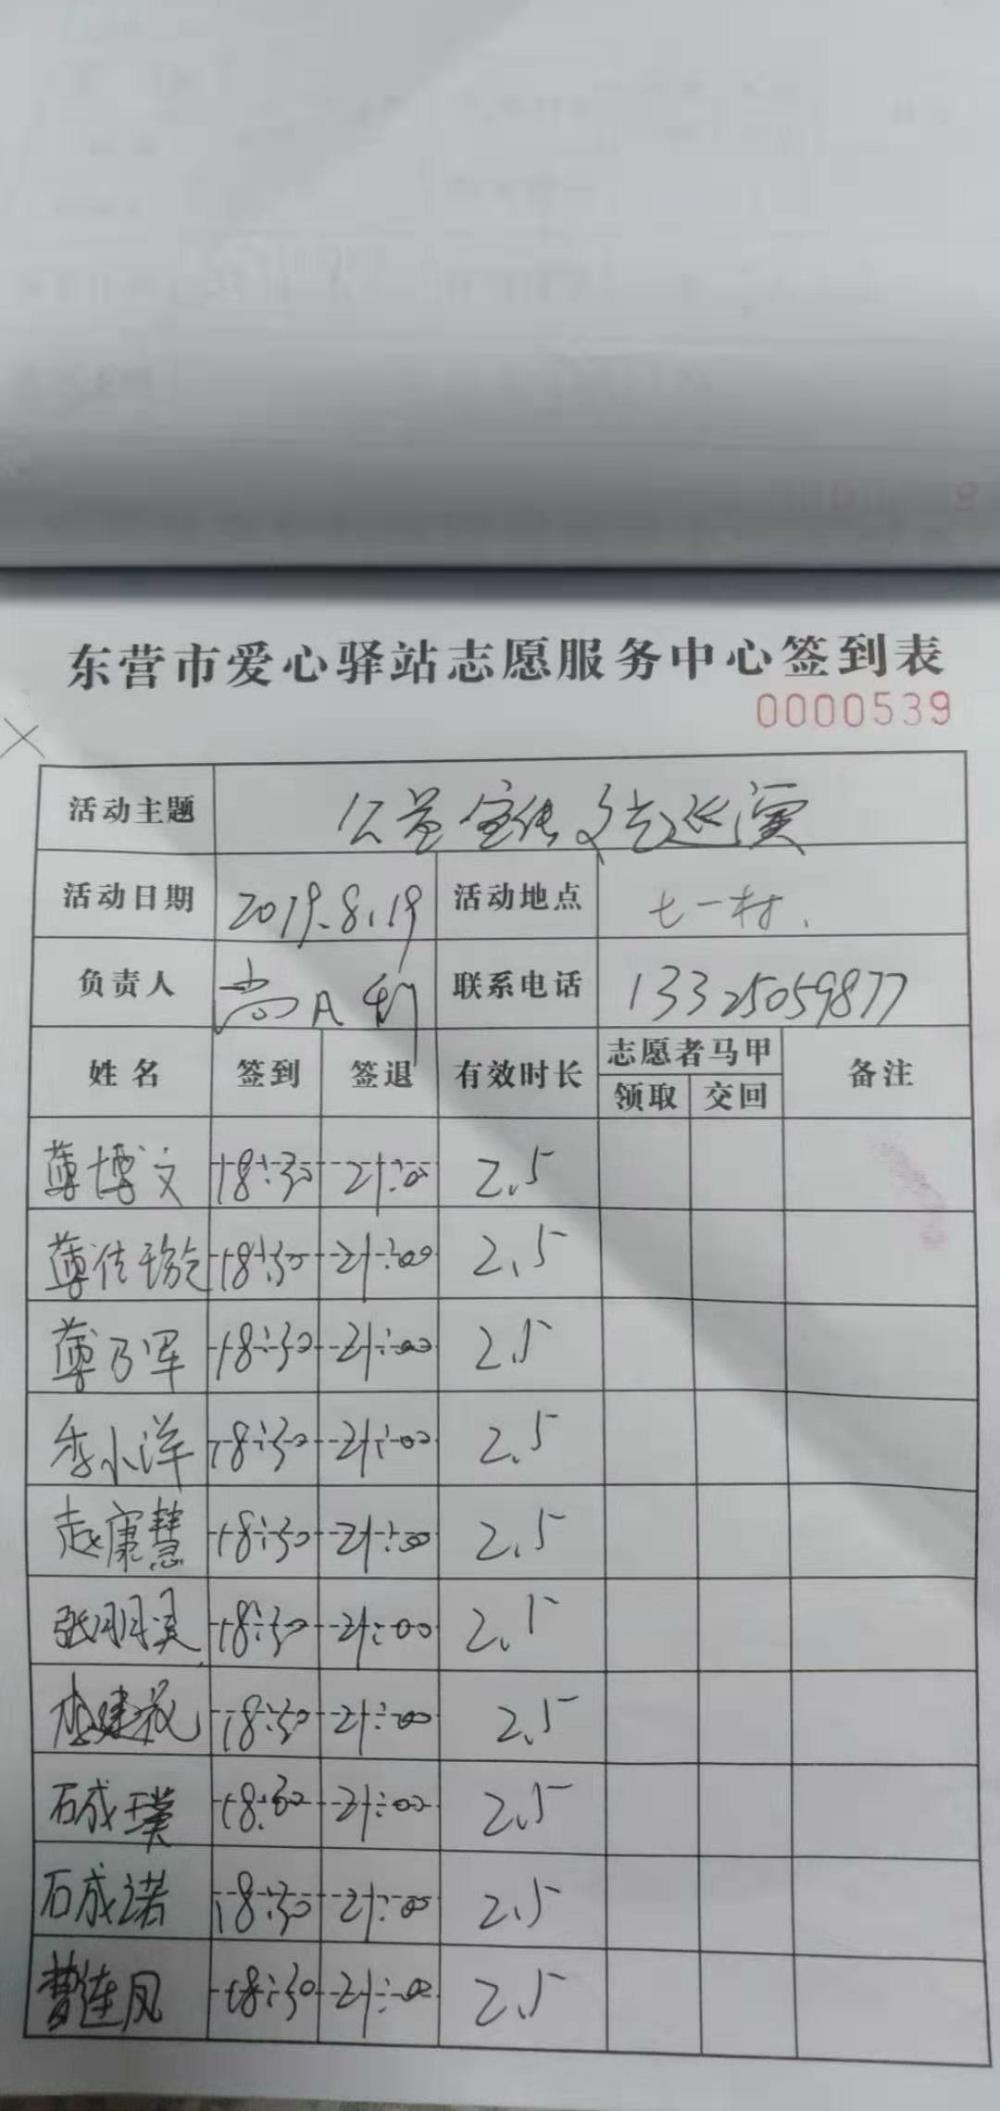 东营市爱心驿站志愿服务中心签到表
0000539
活动主题 公益宣传文艺巡演
活动日期 2019.8.19 活动地点 七一村.
负责人 尚 利 联系电话 13325059877
姓名 签到 签退 有效时长 志愿者马甲 备注
领取 交回
薄博文 18:30 21:00 2.5
薄佳 18:30 21:00 2.5
薄乃军 18:30 21:00 2.5
季小洋 18:30 21:00 2.5
赵康慧 18:30 21:00 2.5
张明昊 18:30 21:00 2.5
李建 18:30 21:00 2.5
石成璞 18:30 21:00 2.5
石成诺 18:30 21:00 2.5
曹连凤 18:30 21:00 2.5